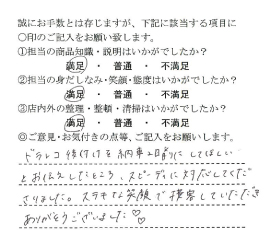 誠にお手数とは存じますが、下記に該当する項目に
○印のご記入をお願い致します。
①担当の商品知識・説明はいかがでしたか？
満足 ・ 普通 ・ 不満足
②担当の身だしなみ・笑顔・態度はいかがでしたか？
満足 ・ 普通 ・ 不満足
③店内外の整理・整頓・清掃はいかがでしたか？
満足 ・ 普通 ・ 不満足
◎ご意見・お気付きの点等、ご記入をお願いします。
ドラレコ 後付けを納車2日前にしてほしい
とお伝えしたところ、スピーディに対応してくだ
さりました。ステキな笑顔で接客していただき
ありがとうございました♡♡